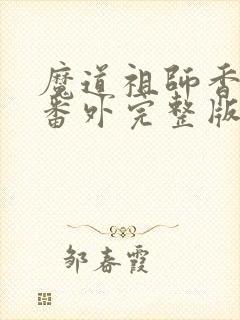 魔道祖師香
番外完整版
邹春霞